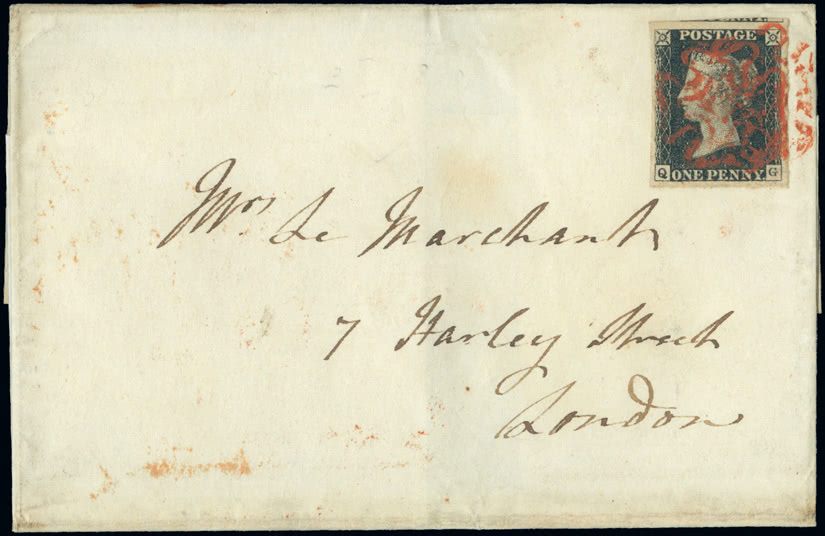 POSTAGE
Q ONE PENNY G
Mrs Le Marchant
7 Harley Street
London